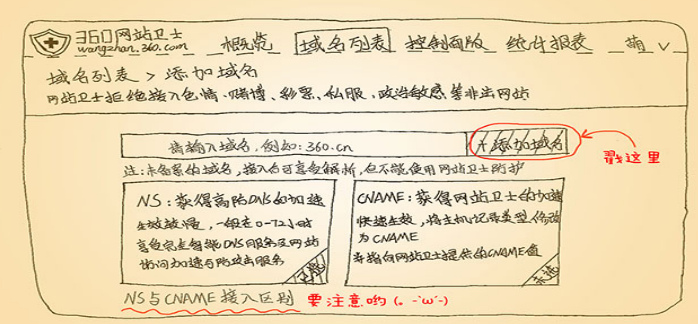 360网站卫士
wangzhan.360.com
概览 域名列表 控制面版 统计报表 萌 ∨
域名列表 > 添加域名
网站卫士拒绝接入色情、赌博、彩票、私服、政治敏感等非法网站
请输入域名,例如:360.cn
+添加域名
戳这里
注:未备案的域名,接入后可享受解析,但不能使用网站卫士防护
NS:获得高防DNS的加速
生效较慢,一般在0-72小时
享受完全智能DNS服务及网站
访问加速与防攻击服务
CNAME:获得网站卫士的加速
快速生效,将主机记录类型修改
为CNAME
并指向网站卫士提供的CNAME值
未选
NS与CNAME接入区别 要注意哟(。-`ω´-)